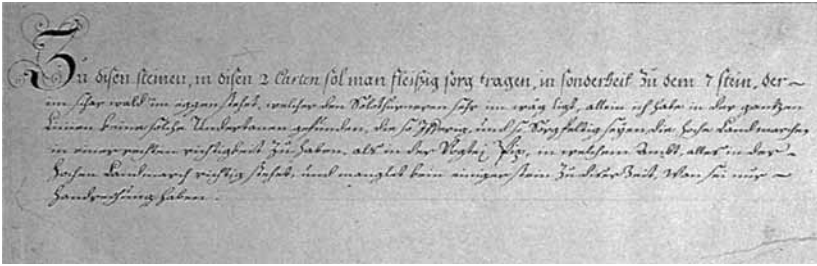 Zu disen steinen, in disen 2 Carten sol man fleißig sorg tragen, in sonderheit Zu dem 7 stein, der –
im wald im eggen stehet, welcher den Solothurneren sehr im wäg ligt, allein ich habe in der gantzen
Linien keine solche Underthanen gefunden, die so Yfferig, und so Sorgfeltig seyen, die hoche Landmarchen
in einer rechten richtigkeit Zu haben, als in der Vogtej Pip, in welchem Ambt, alles in der –
hochen Landmarch richtig stehet, und manglet kein einiger stein Zu diser Zeit, Wan sei nur –
handreichung haben.